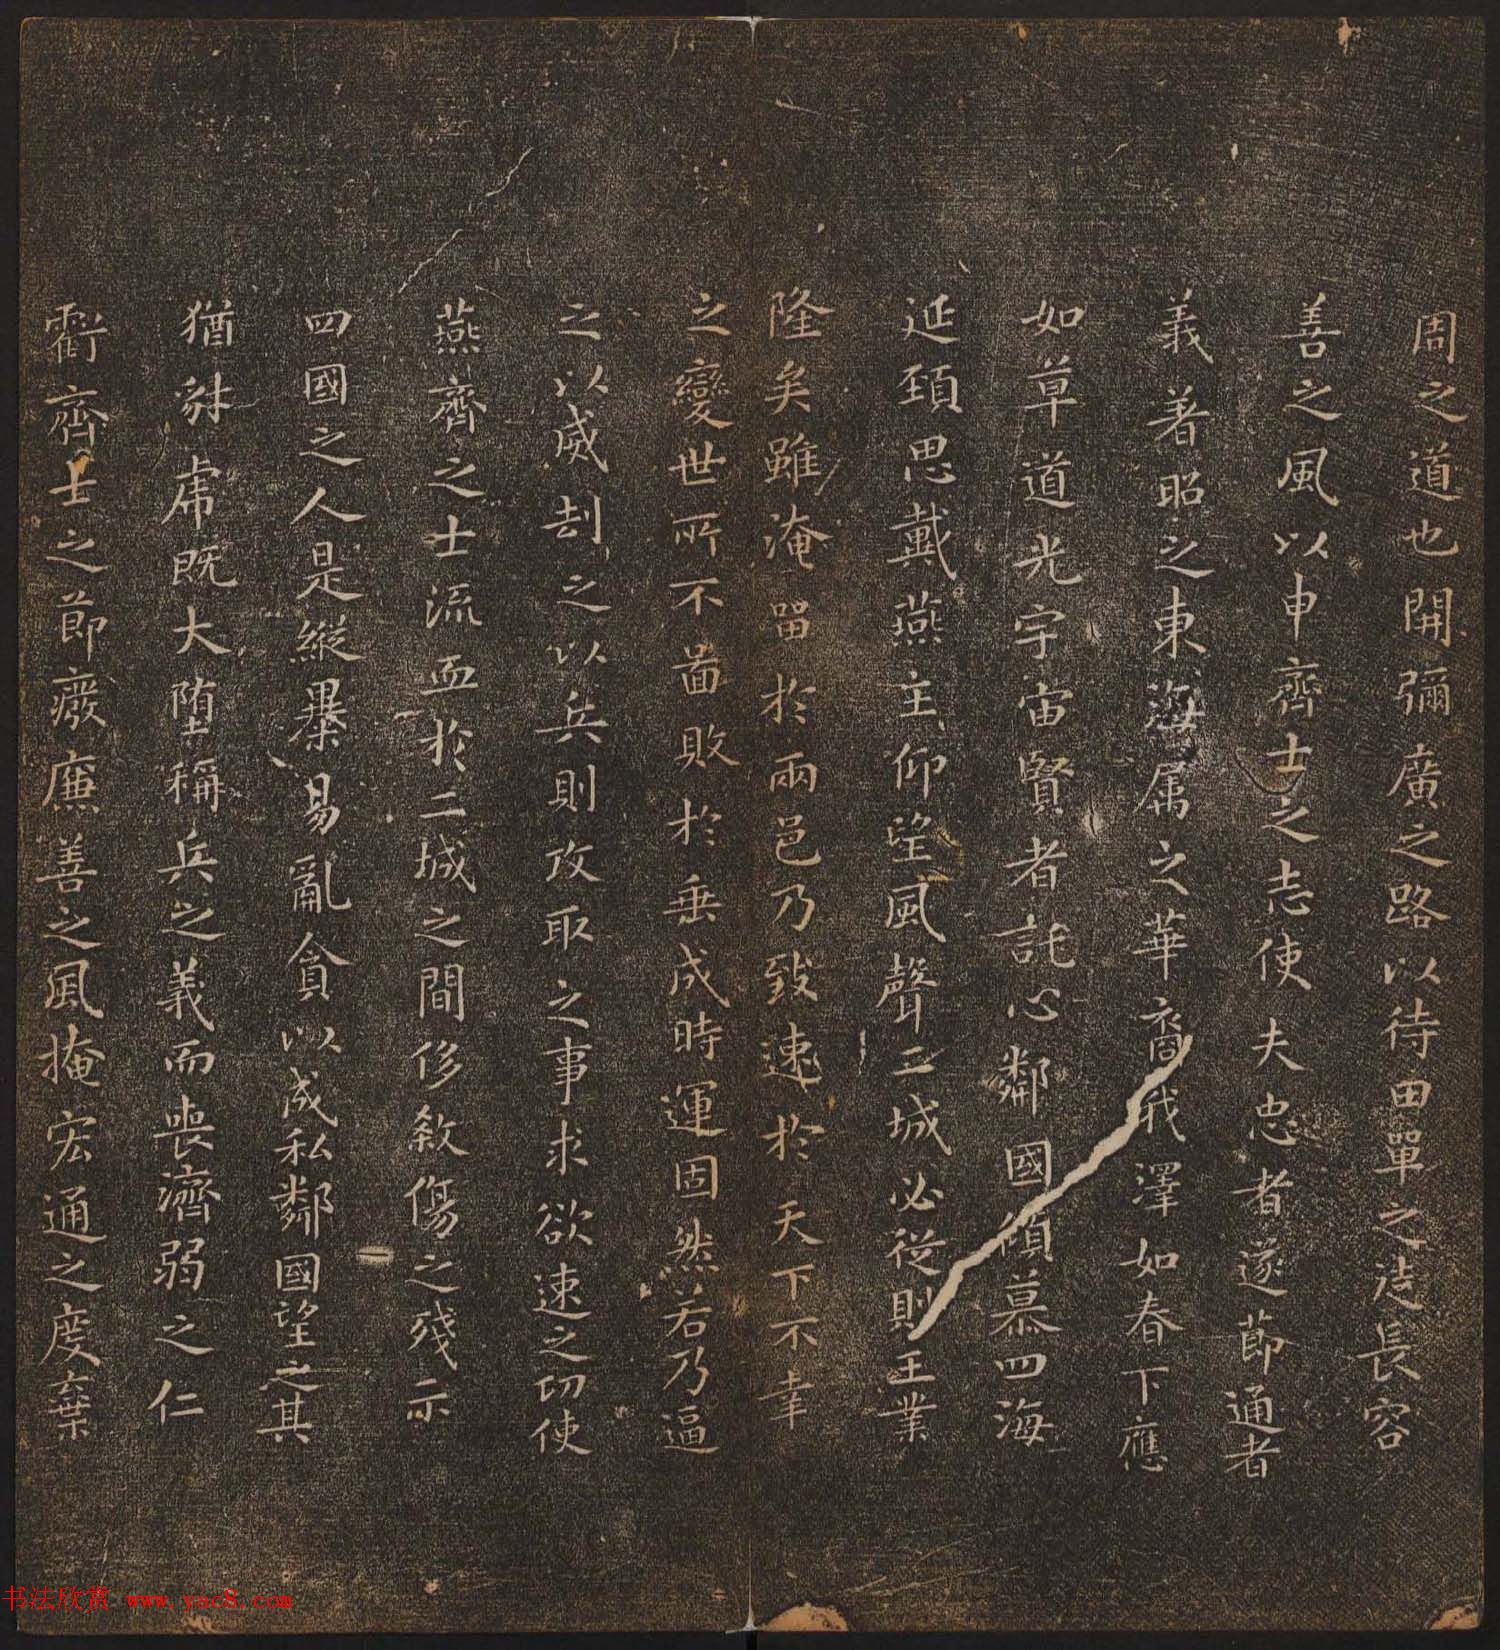 周之道也開彌廣之路以待田單之徒長容
善之風以申齊士之志使夫忠者遂節通者
義著昭之東海属之華裔我澤如春下應
如草道光宇宙賢者託心鄰國傾慕四海
延頚思戴燕主仰望風聲二城必從則王業
隆矣雖淹留於兩邑乃致速於天下不幸
之變世所不啚敗於垂成時運固然若乃逼
之以威刦之以兵則攻取之事求欲速之功使
燕齊之士流血於二城之間侈煞傷之殘示
四國之人是縱暴易亂貪以成私鄰國望之其
猶豺虎既大堕稱兵之義而喪濟弱之仁
虧齊士之節廢廉善之風掩宏通之度棄
书法欣赏 www.yac8.com